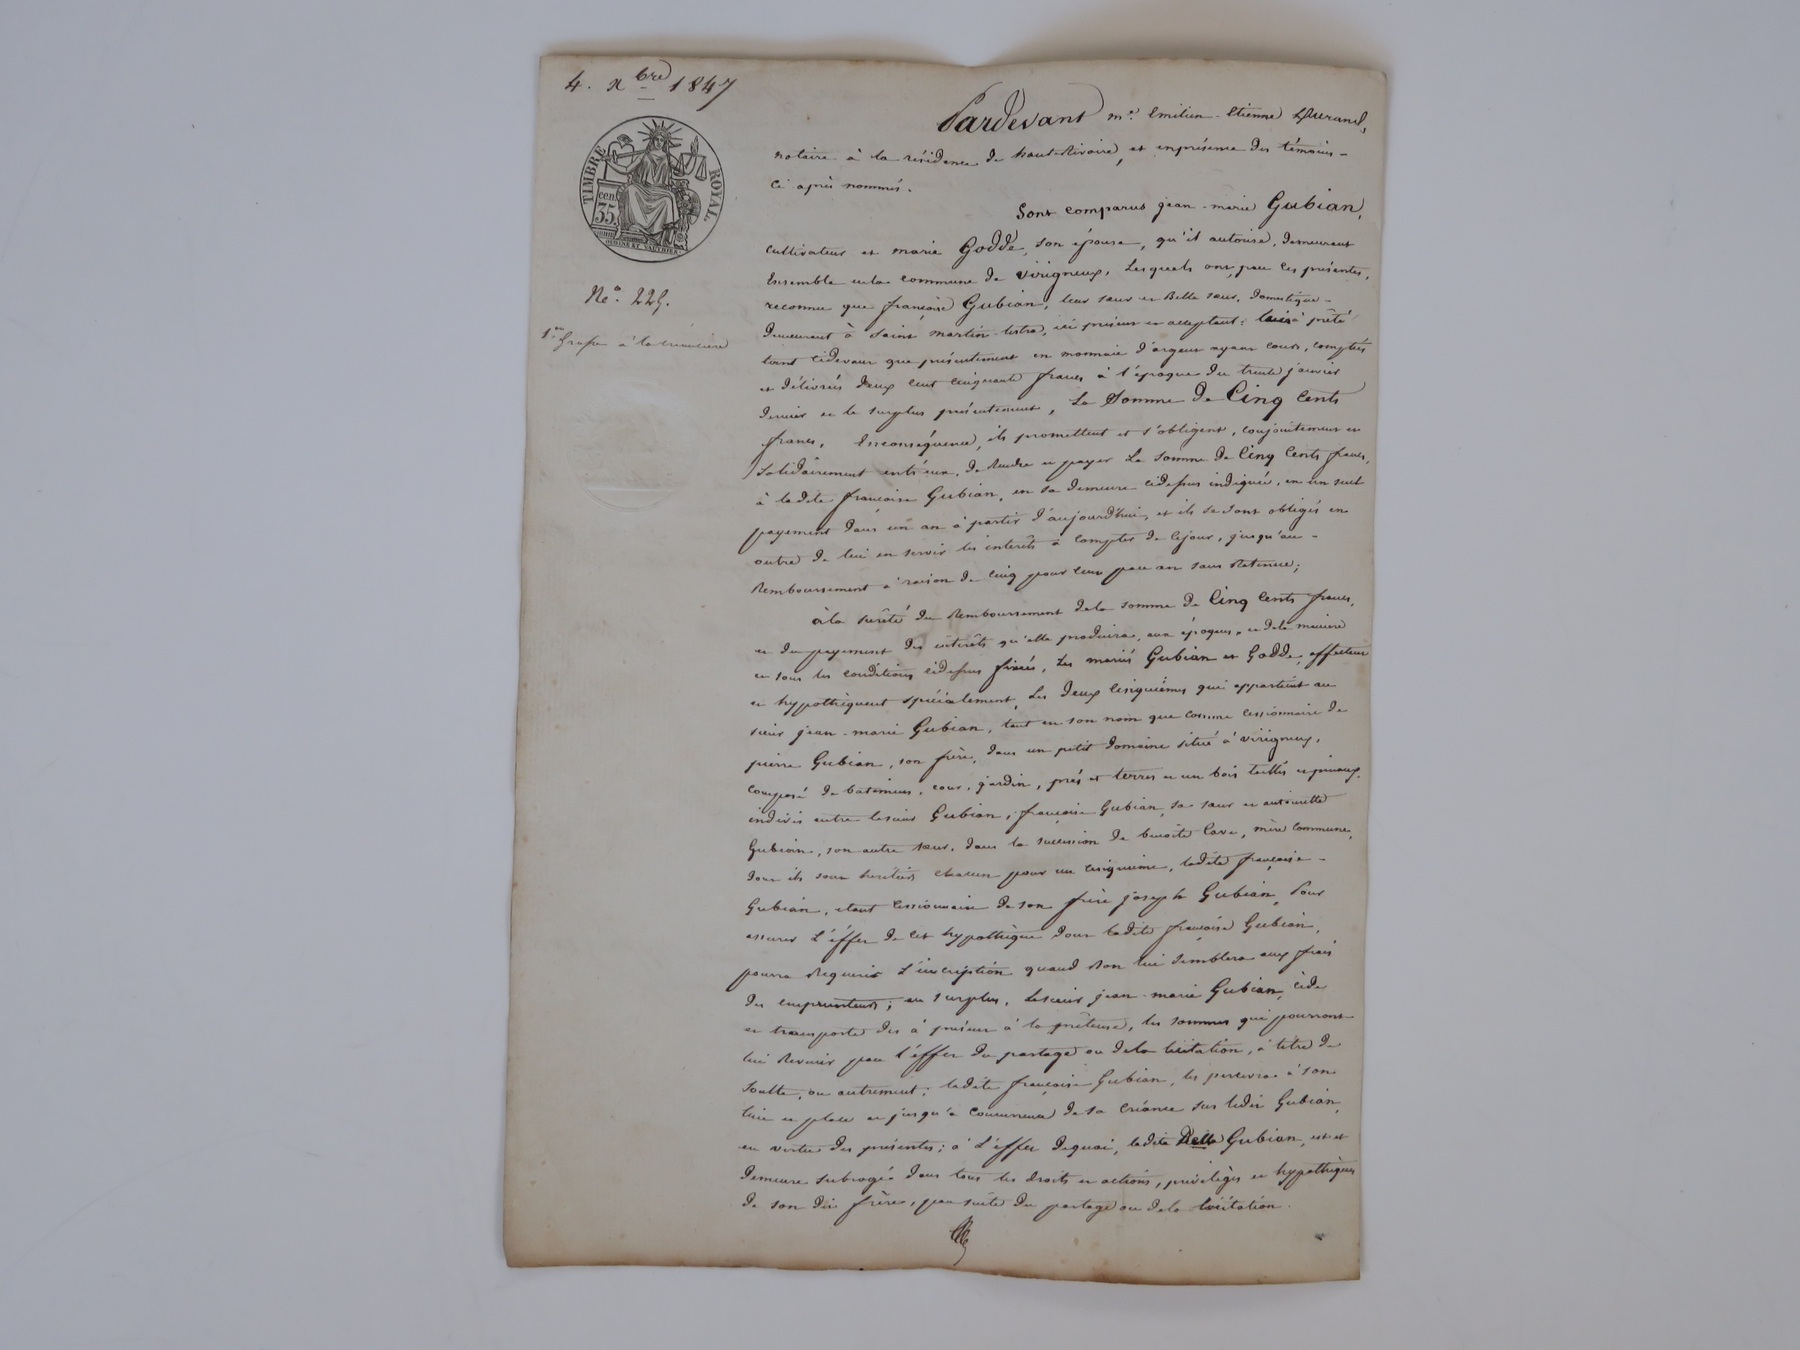 4. xbre 1847
TIMBRE ROYAL
cen. 35
No. 225.
1ere Grosse à la créancière
Pardevant me. Emilien-Etienne Durand,
notaire à la résidence de haute Rivoire, et en présence des témoins
ci après nommés.
Sont comparus jean-marie Gubian,
cultivateur et marie Godde, son épouse, qu'il autorise, demeurant
Ensemble en la commune de virigneux, Lesquels ont, par ces présentes,
reconnu que françoise Gubian, leur sœur et Belle sœur, domestique
demeurant à saint martin-lestra, ici présente et acceptant; leur a prêté
tant cidevant que présentement en monnaie d'argent ayant cours, comptés
et délivrés deux cent cinquante francs à l'époque du trente janvier
dernier et le surplus présentement, La Somme de Cinq Cents
francs, Enconséquence, ils promettent et s'obligent, conjointement et
solidairement entr'eux, de Rendre et payer La somme de Cinq Cents francs,
à ladite françoise Gubian, en sa demeure cidessus indiquée, en un seul
payement dans un an à partir d'aujourd'hui, et ils se sont obligés en
outre de lui en servir les intérêts à compter de cejour, jusqu'au
Remboursement à raison de cinq pour cent par an sans Retenue;
à la sûreté du Remboursement dela somme de Cinq Cents francs,
et du payement des intérêts qu'elle produira, aux époques, et dela manière
et sous les conditions cidessus fixées, Les mariés Gubian et Godde, affectent
et hypothèquent spécialement, Les deux cinquièmes qui appartient au
sieur jean-marie Gubian, tant en son nom que comme cessionnaire de
pierre Gubian, son frère, dans un petit domaine situé à virigneux,
composé de bâtimens, cour, jardin, prés et terres et un bois taillis et pineaux,
indivis entre lesieur Gubian, françoise Gubian, sa sœur et antoinette
Gubian, son autre sœur, dans la succession de benoite Cave, mère commune,
dont ils sont héritiers chacun pour un cinquième, ladite françoise
Gubian, étant cessionnaire de son frère joseph Gubian, Pour
assurer L'éffet de cet hypothèque dont ladite françoise Gubian,
pourra Requerir L'inscription quand Bon lui semblera aux frais
des emprunteurs; au surplus, Lesieur jean-marie Gubian, cède
et transporte dès à présent à la prêteuse, les sommes qui pourront
lui Revenir par l'éffet du partage ou dela licitation, à titre de
Soulte, ou autrement; ladite françoise Gubian, les percevra à son
lieu et place et jusqu'à concurrence de sa créance sur ledit Gubian,
en vertu des présentes; à L'éffet dequoi, ladite Delle Gubian, est et
demeure subrogée dans tous les droits et actions, privilèges et hypothèques
de son dit frère, par suite du partage ou dela licitation.